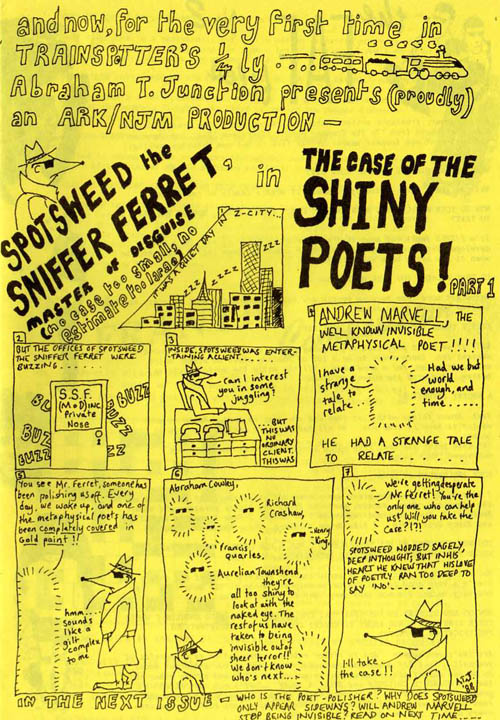 and now, for the very first time in
TRAINSPOTTER'S ½ly
Abraham T. Junction presents (proudly)
an ARK/NJM PRODUCTION –
SPOTSWEED the
SNIFFER FERRET,
MASTER OF DISGUISE
(no case too small, no
estimate too large)
in
THE CASE OF THE
SHINY
POETS!
PART 1
IT WAS A QUIET DAY IN
Z-CITY...
ZZZZ
ZZZZ
ZZZZ
2
BUT THE OFFICES OF SPOTSWEED
THE SNIFFER FERRET WERE
BUZZING . . . . . .
S.S.F.
(M of D) INC
Private
Nose
BUZZ
BUZZ
BUZZ
BUZZ
3
INSIDE, SPOTSWEED WAS ENTER-
TAINING A CLIENT.....
can I interest
you in some
juggling?
... BUT
THIS WAS
NO
ORDINARY
CLIENT.
THIS WAS
ANDREW MARVELL, THE
WELL KNOWN INVISIBLE
METAPHYSICAL POET !!!!
I have a
strange
tale to
relate...
Had we but
world
enough, and
time.....
HE HAD A STRANGE TALE
TO RELATE . . . . . . .
5
You see Mr. Ferret, someone has
been polishing us off. Every
day, we wake up, and one of
the metaphysical poets has
been completely covered in
Gold paint!!
hmm....
sounds
like a
gilt
complex
to me
6
Abraham Cowley,
Richard
Crashaw,
Henry
King,
Francis
quarles,
Aurelian Townshend,
they're
all too shiny to
look at with the
naked eye. The
rest of us have
taken to being
invisible out of
sheer terror!!
We don't know
who's next...
7
We're getting desperate
Mr Ferret! You're the
only one who can help
us! Will you take the
case?!?!
SPOTSWEED NODDED SAGELY,
DEEP IN THOUGHT, BUT IN HIS
HEART HE KNEW THAT HIS LOVE
OF POETRY RAN TOO DEEP TO
SAY 'NO'.....
I'll take
the case!!
'88
IN THE NEXT ISSUE – WHO IS THE POET-POLISHER? WHY DOES SPOTSWEED
ONLY APPEAR SIDEWAYS? WILL ANDREW MARVELL
STOP BEING INVISIBLE? READ ON NEXT TIME.....